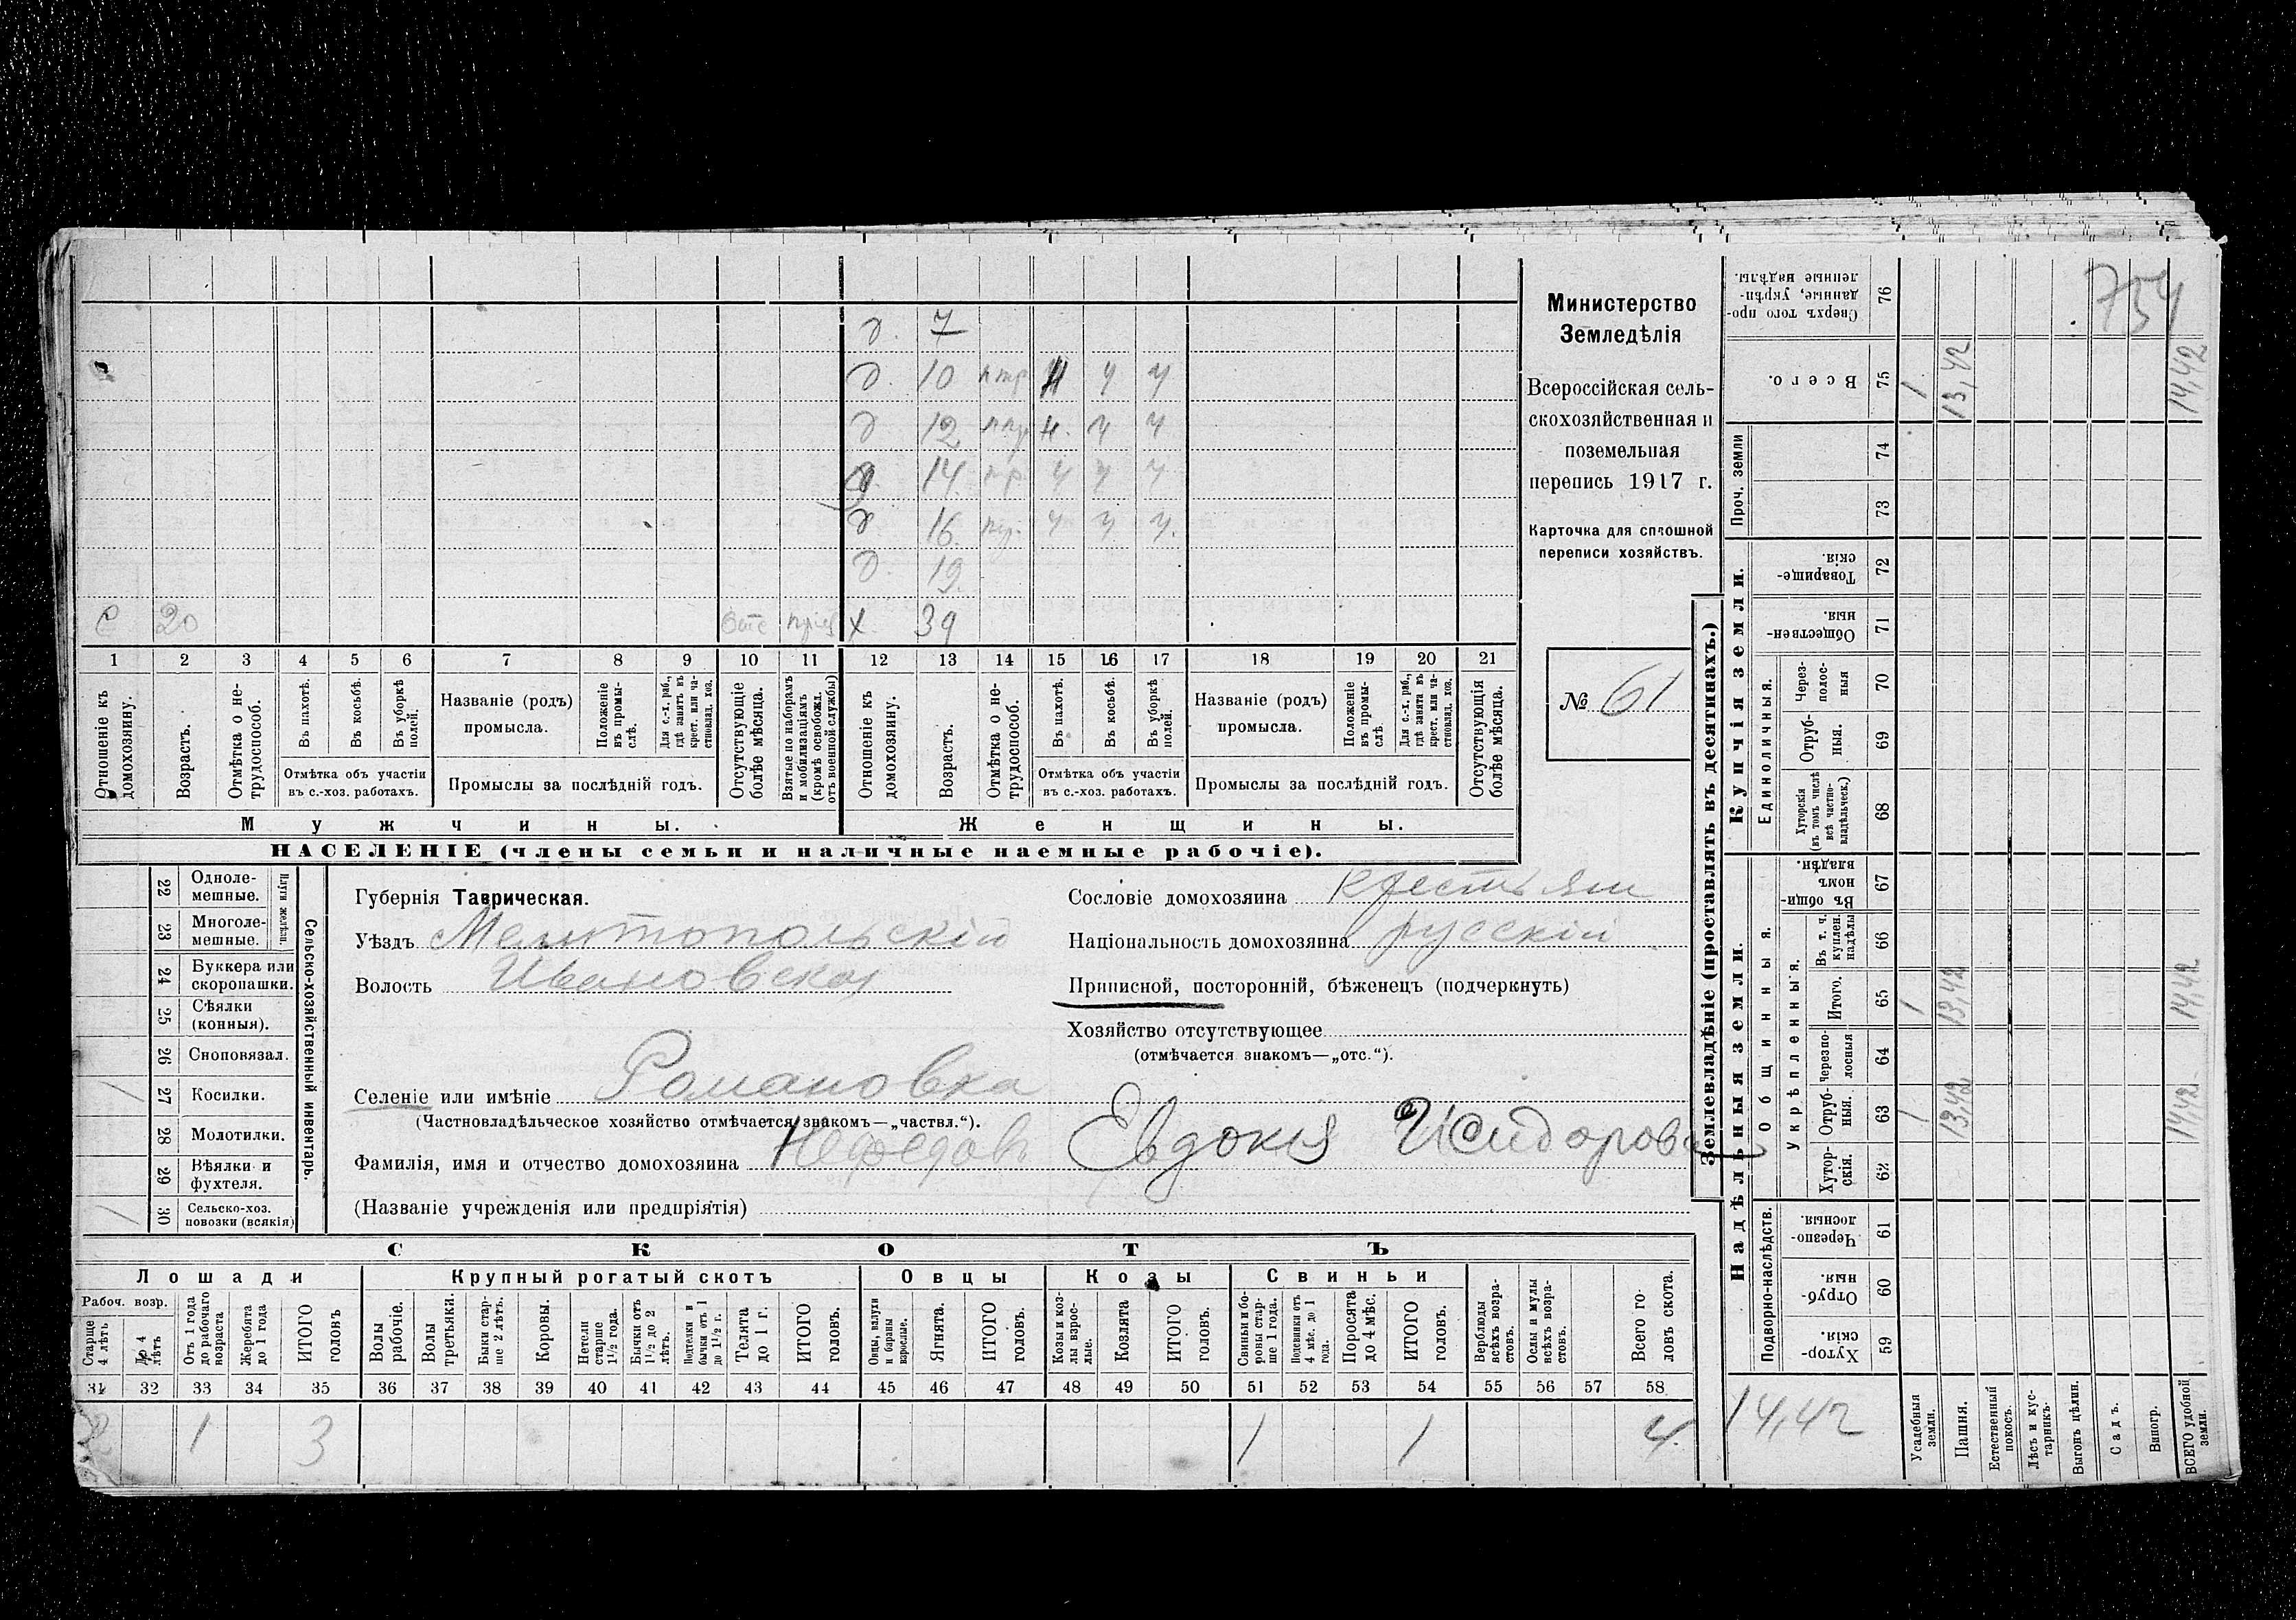 754
д. 7
д. 10 н ч ч
д 12 н. ч ч
д. 14 ч ч ч
д 16. ч ч ч.
д. 19.
С 20 х. 39
1 2 3 4 5 6 7 8 9 10 11 12 13 14 15 16 17 18 19 20 21
Отношеніе къ домохозяину.
Возрастъ.
Отмѣтка о нетрудоспособ.
Въ пахотѣ.
Въ косьбѣ.
Въ уборкѣ полей.
Отмѣтка объ участіи въ с.-хоз. работахъ.
Названіе (родъ) промысла.
Положеніе въ промыслѣ.
Для с.-х. раб., гдѣ занятъ въ крест. или частновлад. хоз.
Промыслы за послѣдній годъ.
Отсутствующіе болѣе мѣсяца.
Взятые по наборамъ и мобилизаціямъ (кромѣ освобожд. отъ военной службы)
Отношеніе къ домохозяину.
Возрастъ.
Отмѣтка о нетрудоспособ.
Въ пахотѣ.
Въ косьбѣ.
Въ уборкѣ полей.
Отмѣтка объ участіи въ с.-хоз. работахъ.
Названіе (родъ) промысла.
Положеніе въ промыслѣ
Для с.-х. раб., гдѣ занята въ крест. или частновлад. хоз.
Промыслы за послѣдній годъ.
Отсутствующія болѣе мѣсяца.
Мужчины. Женщины.
НАСЕЛЕНІЕ (члены семьи и наличные наемные рабочіе).
Министерство
Земледѣлія
Всероссійская сель-
скохозяйственная и
поземельная
перепись 1917 г.
Карточка для сплошной
переписи хозяйствъ.
№ 61
Сельско-хозяйственный инвентарь.
Плуги желѣзн.
22 Однолемешные.
23 Многолемешные.
24 Буккера или скоропашки.
25 Сѣялки (конныя).
26 Сноповязал.
/ 27 Косилки.
28 Молотилки.
29 Вѣялки и фухтеля.
/ 30 Сельско-хоз. повозки (всякія)
Губернія Таврическая.
Уѣздъ Мелитопольскій
Волость Ивановская
Селеніе или имѣніе Романовка
(Частновладѣльческое хозяйство отмѣчается знакомъ—„частвл.“).
Фамилія, имя и отчество домохозяина Нефедовъ Евдокія Исидорова
(Названіе учрежденія или предпріятія)
Сословіе домохозяина крестьян
Національность домохозяина русскій
Приписной, посторонній, бѣженецъ (подчеркнуть)
Хозяйство отсутствующее
(отмѣчается знакомъ—„отс.“).
СКОТЪ
Лошади Крупный рогатый скотъ Овцы Козы Свиньи
Рабоч. возр.
Старше 4 лѣтъ
До 4 лѣтъ
Отъ 1 года до рабочаго возраста
Жеребята до 1 года
ИТОГО головъ
Волы рабочіе.
Волы третьяки.
Быки старше 2 лѣтъ.
Коровы.
Нетели старше 1½ года.
Бычки отъ 1½ до 2 лѣтъ.
Подтелки и бычки отъ 1 до 1½ г.
Телята до 1 г.
ИТОГО головъ.
Овцы, валухи и бараны взрослые.
Ягнята.
ИТОГО головъ.
Козы и козлы взрослые.
Козлята
ИТОГО головъ.
Свиньи и боровы старше 1 года.
Подсвинки отъ 4 мѣс. до 1 года.
Поросята до 4 мѣс.
ИТОГО головъ.
Верблюды всѣхъ возрастовъ.
Ослы и мулы всѣхъ возрастовъ.
Всего головъ скота.
31 32 33 34 35 36 37 38 39 40 41 42 43 44 45 46 47 48 49 50 51 52 53 54 55 56 57 58
2 1 3 1 1 4.
Землевладѣніе (проставлять въ десятинахъ.)
Надѣльныя земли. Купчія земли.
Подворно-наслѣдств.
Общинныя.
Укрѣпленныя.
Единоличныя.
Проч. земли
Хуторскія. 59
Отрубныя. 60
Черезполосныя. 61
Хуторскія. 62
Отрубныя. 63 1 13,42 14,42
Черезполосныя 64
Итого. 65 1 13,42 14,42
Въ т. ч. куплен. надѣлы 66
Въ общинномъ владѣн. 67
Хуторскія (въ томъ числѣ всѣ частновладѣльческ.) 68
Отрубныя. 69
Черезполосныя 70
Общественныя. 71
Товарищескія. 72
73
74
Всего. 75 1 13,42 14,42
Сверхъ того проданные, укрѣпленные надѣлы. 76
14,42
Усадебныя земли.
Пашня.
Естественный покосъ.
Лѣсъ и кустарникъ.
Выгонъ цѣлин.
Садъ.
Виногр.
ВСЕГО удобной земли.